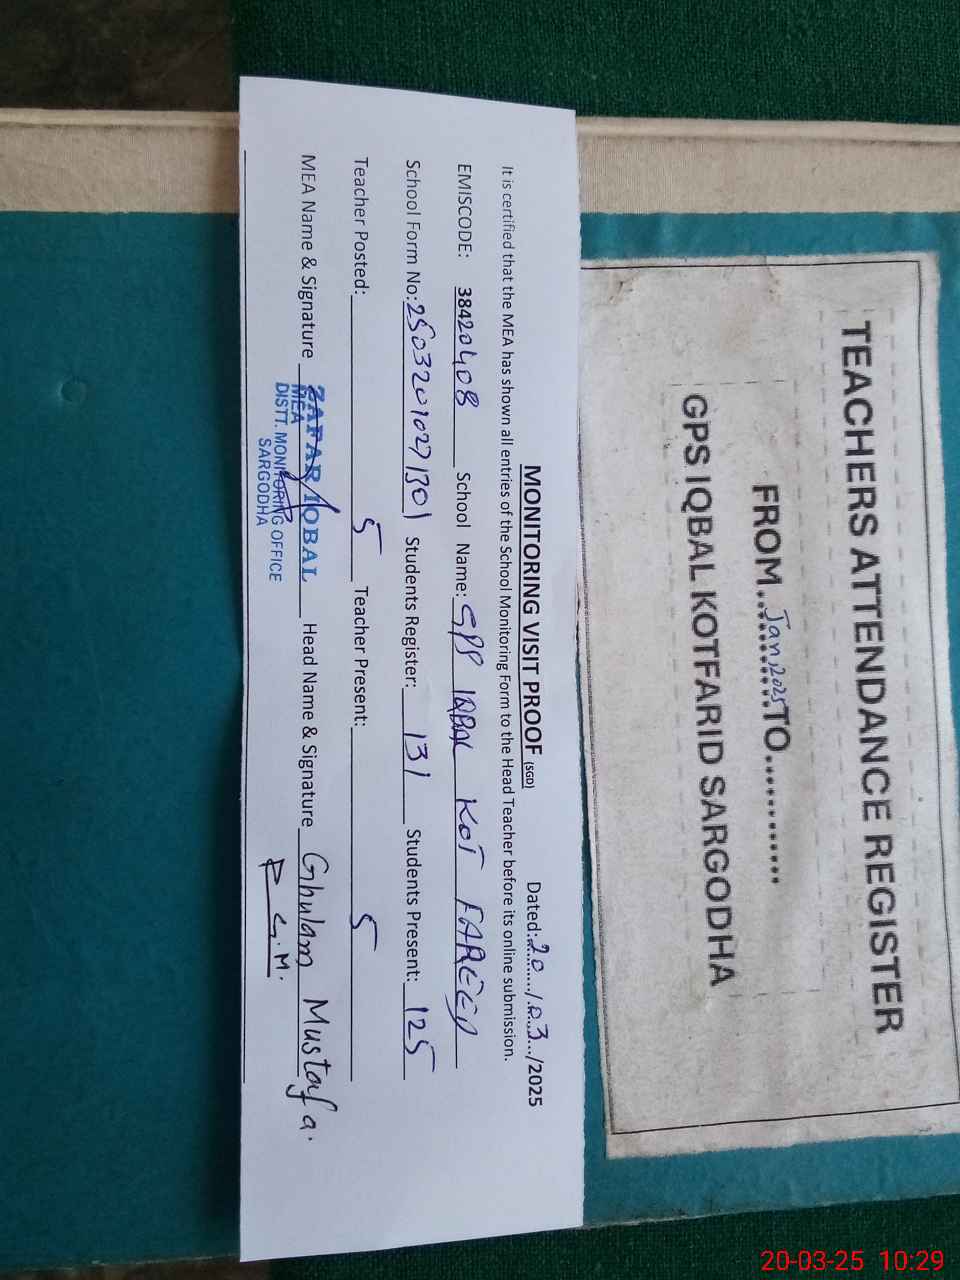 TEACHERS ATTENDANCE REGISTER
FROM..Jan,2025..TO............
GPS IQBAL KOTFARID SARGODHA
MONITORING VISIT PROOF (SGD) Dated:20/03/2025
It is certified that the MEA has shown all entries of the School Monitoring Form to the Head Teacher before its online submission.
EMISCODE: 38420408 School Name: GPS IQBAL KOT FAREED
School Form No: 2503201027301 Students Register: 131 Students Present: 125
Teacher Posted: 5 Teacher Present: 5
MEA Name & Signature ZAFAR IQBAL Head Name & Signature Ghulam Mustafa.
MEA
DISTT. MONITORING OFFICE
SARGODHA
G.M.
20-03-25 10:29